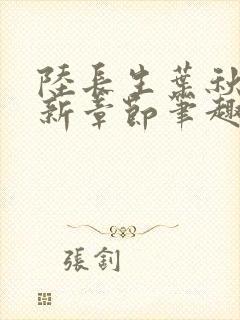 陸長生葉秋
新章節筆趣
張釗